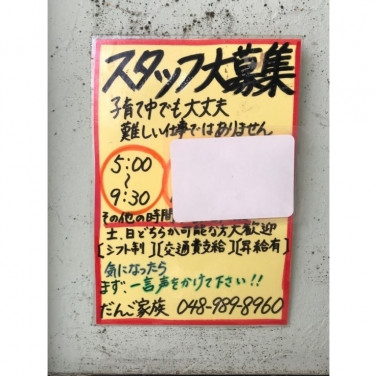 スタッフ大募集
子育て中でも大丈夫
難しい仕事ではありません
5:00
〜
9:30
その他の時間
土、日どちらか可能な方大歓迎
[シフト制] [交通費支給] [昇給有]
気になったら
まず、一言声をかけて下さい!!
だんご家族 048-989-8960